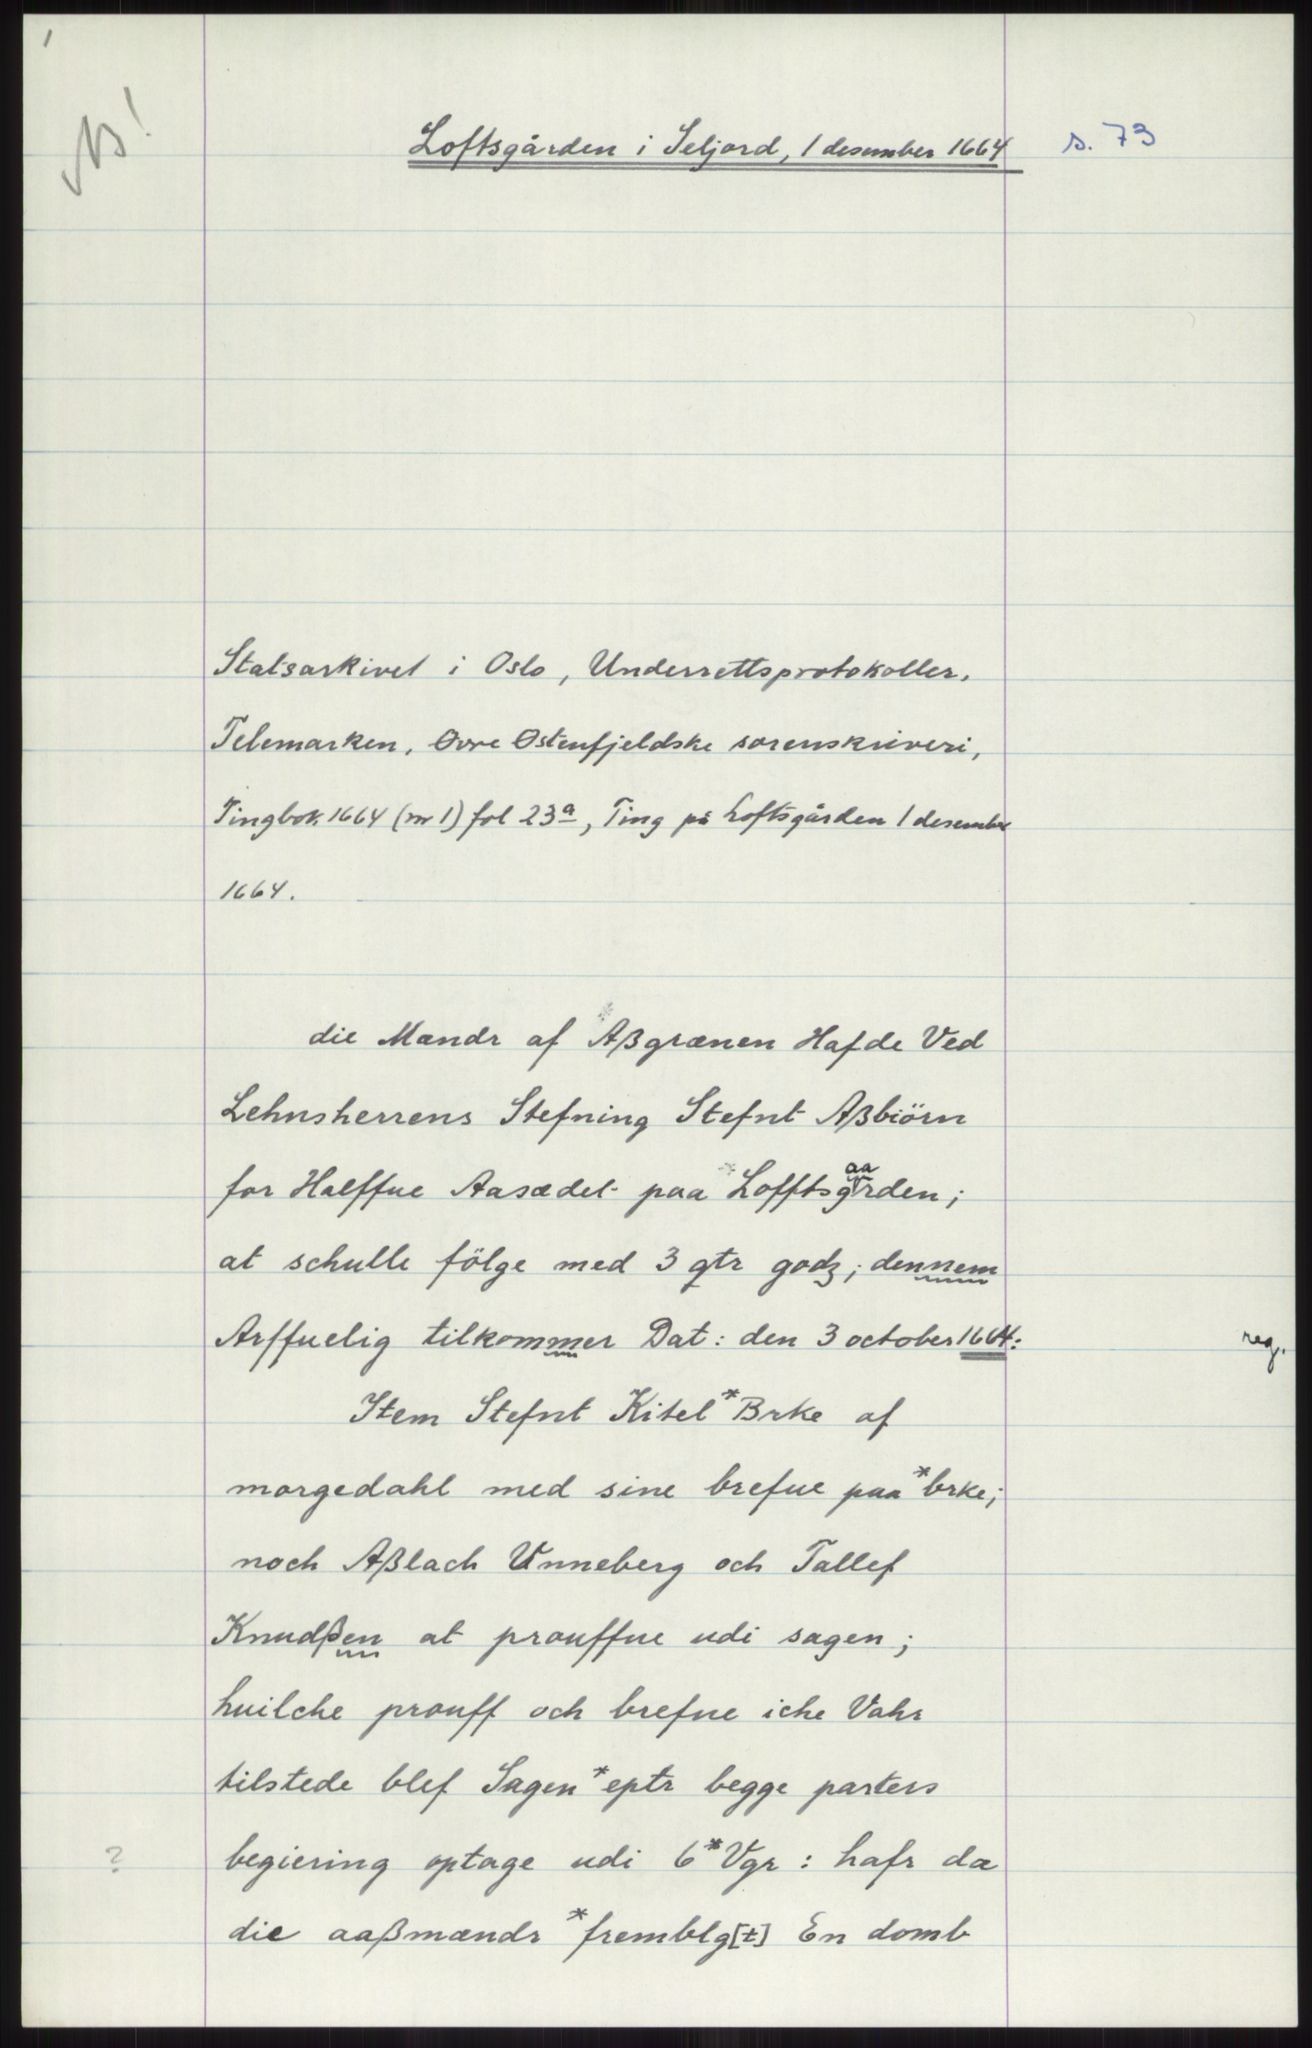 1
NB!
Loftsgården i Seljord, 1 desember 1664
s. 73
Statsarkivet i Oslo, Underrettsprotokoller,
Telemarken, Øvre Østenfjeldske sorenskriveri,
Tingbok 1664 (nr 1) fol 23a, Ting på Loftsgården 1 desember
1664.
die Mændr af *Aßgrænen Hafde Ved
Lehnsherrens Stefning Stefnt Aßbiörn
for Halffue Aasædet paa *Lofftsgaarden;
at schulle fölge med 3 qtr godz; dennem
Arffuelig tilkommer Dat: den 3 october 1664:
reg.
Item Stefnt Kitel *Brke af
morgedahl med sine brefue paa *brke;
noch Aßlach Vnneberg och Tallef
Knudßen at prouffue udi sagen;
huilche prouff och brefue iche Vahr
tilstede blef Sagen *eptr begge parters
? begiering optage udi 6 *Vgr: hafr da
die aaßmændr *fremblg[t] En domb